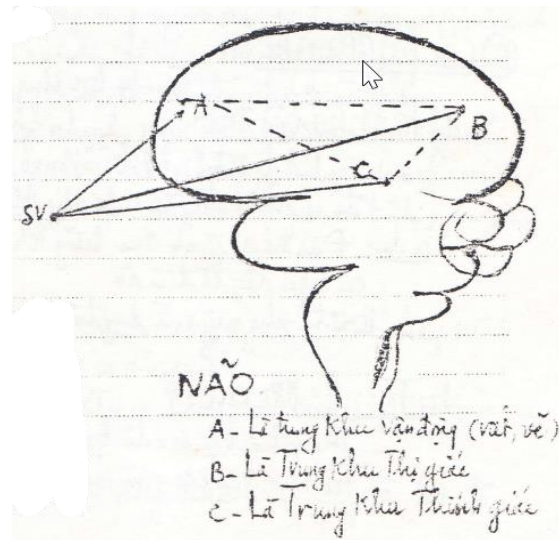 A
B
C
SV
NÃO
A - Là trung khu vận động (viết, vẽ)
B - Là Trung Khu Thị giác
C - Là Trung Khu Thính giác